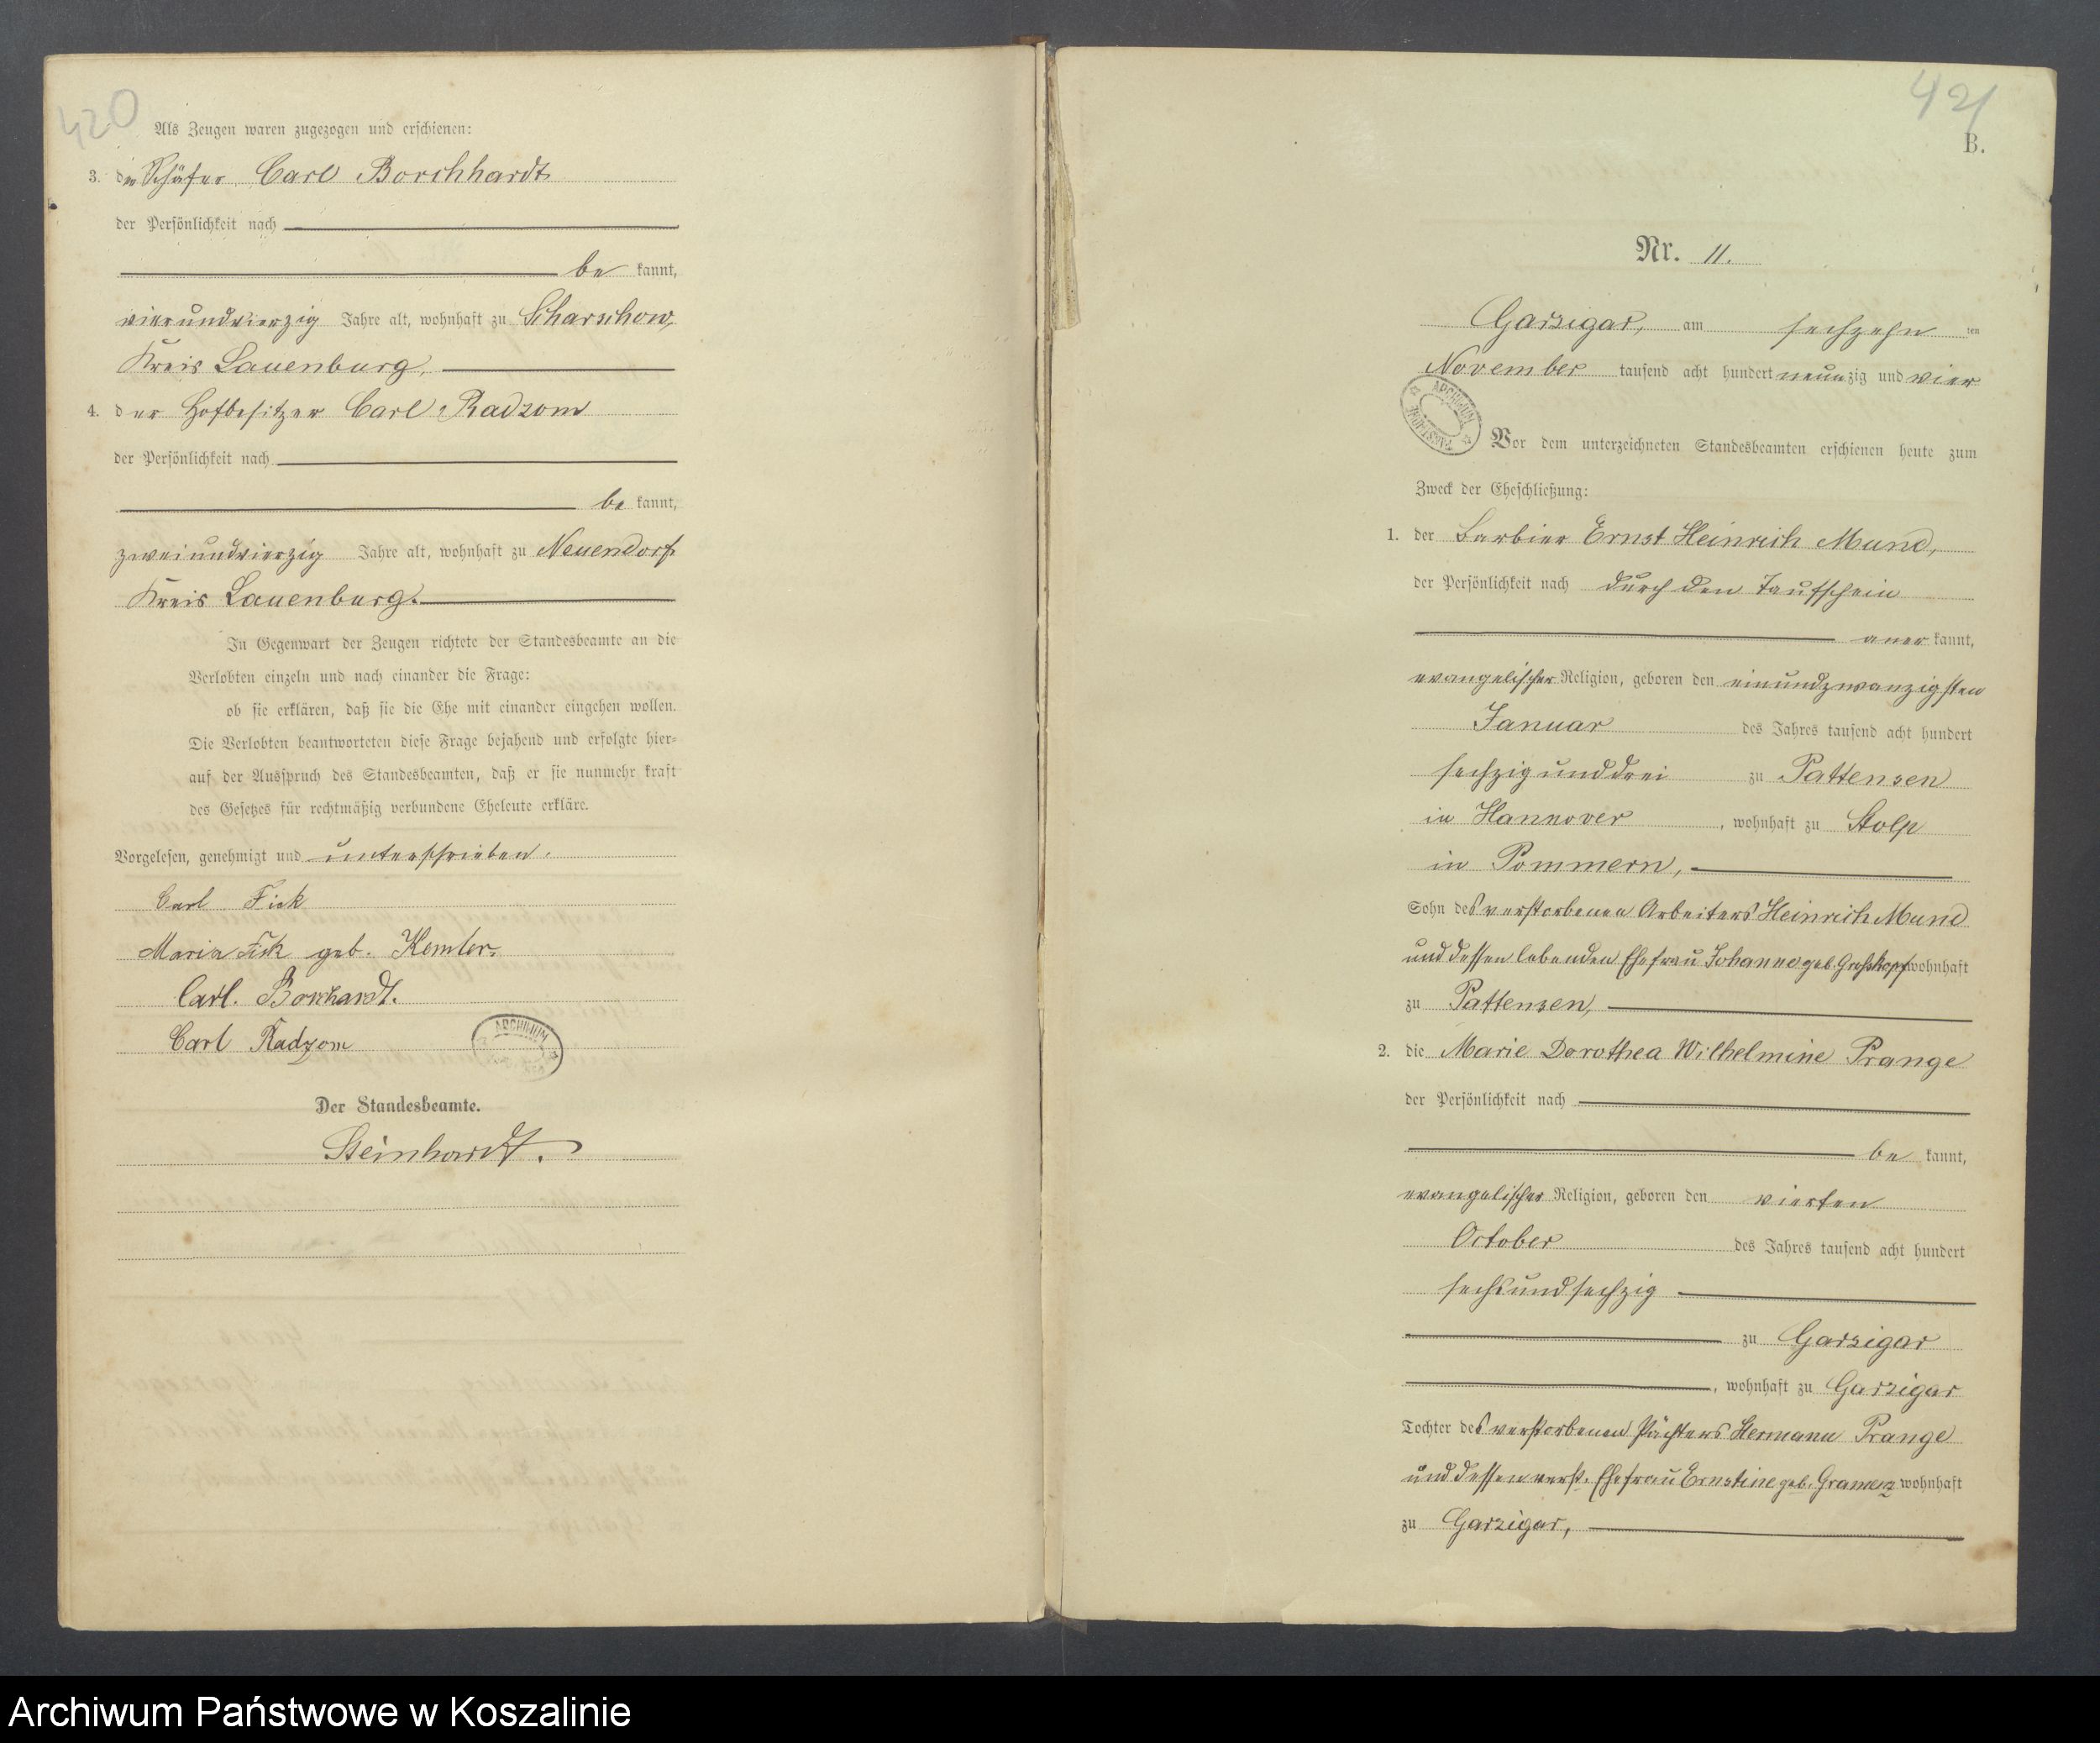 420
Als Zeugen waren zugezogen und erschienen:
3. der Schäfer Carl Borchhardt
der Persönlichkeit nach
be kannt,
vierundvierzig Jahre alt, wohnhaft zu Scharschow,
Kreis Lauenburg,
4. der Hofbesitzer Carl Radzom
der Persönlichkeit nach
be kannt,
zweiundvierzig Jahre alt, wohnhaft zu Neuendorf
Kreis Lauenburg.
In Gegenwart der Zeugen richtete der Standesbeamte an die
Verlobten einzeln und nach einander die Frage:
ob sie erklären, daß sie die Ehe mit einander eingehen wollen.
Die Verlobten beantworteten diese Frage bejahend und erfolgte hier-
auf der Ausspruch des Standesbeamten, daß er sie nunmehr kraft
des Gesetzes für rechtmäßig verbundene Eheleute erkläre.
Vorgelesen, genehmigt und unterschrieben.
Carl Fick
Maria Fik geb. Kemler.
Carl. Borchardt.
Carl Radzom
ARCHIWUM
Der Standesbeamte.
Steinhardt.
421
B.
Nr. 11.
Garzigar, am sechzehn ten
November tausend acht hundert neunzig und vier
ARCHIWUM
Vor dem unterzeichneten Standesbeamten erschienen heute zum
Zweck der Eheschließung:
1. der Barbier Ernst Heinrich Mund,
der Persönlichkeit nach durch den Taufschein
aner kannt,
evangelischer Religion, geboren den einundzwanzigsten
Januar des Jahres tausend acht hundert
sechzig und drei zu Pattensen
in Hannover, wohnhaft zu Stolp
in Pommern,
Sohn des verstorbenen Arbeiters Heinrich Mund
und dessen lebenden Ehefrau Johanne geb. Großkopf wohnhaft
zu Pattensen,
2. die Marie Dorothea Wilhelmine Prange
der Persönlichkeit nach
be kannt,
evangelischer Religion, geboren den vierten
October des Jahres tausend acht hundert
sechsundsechzig
zu Garzigar
, wohnhaft zu Garzigar
Tochter des verstorbenen Pächters Hermann Prange
und dessen verst. Ehefrau Ernstine geb. Gramenz wohnhaft
zu Garzigar,
Archiwum Państwowe w Koszalinie